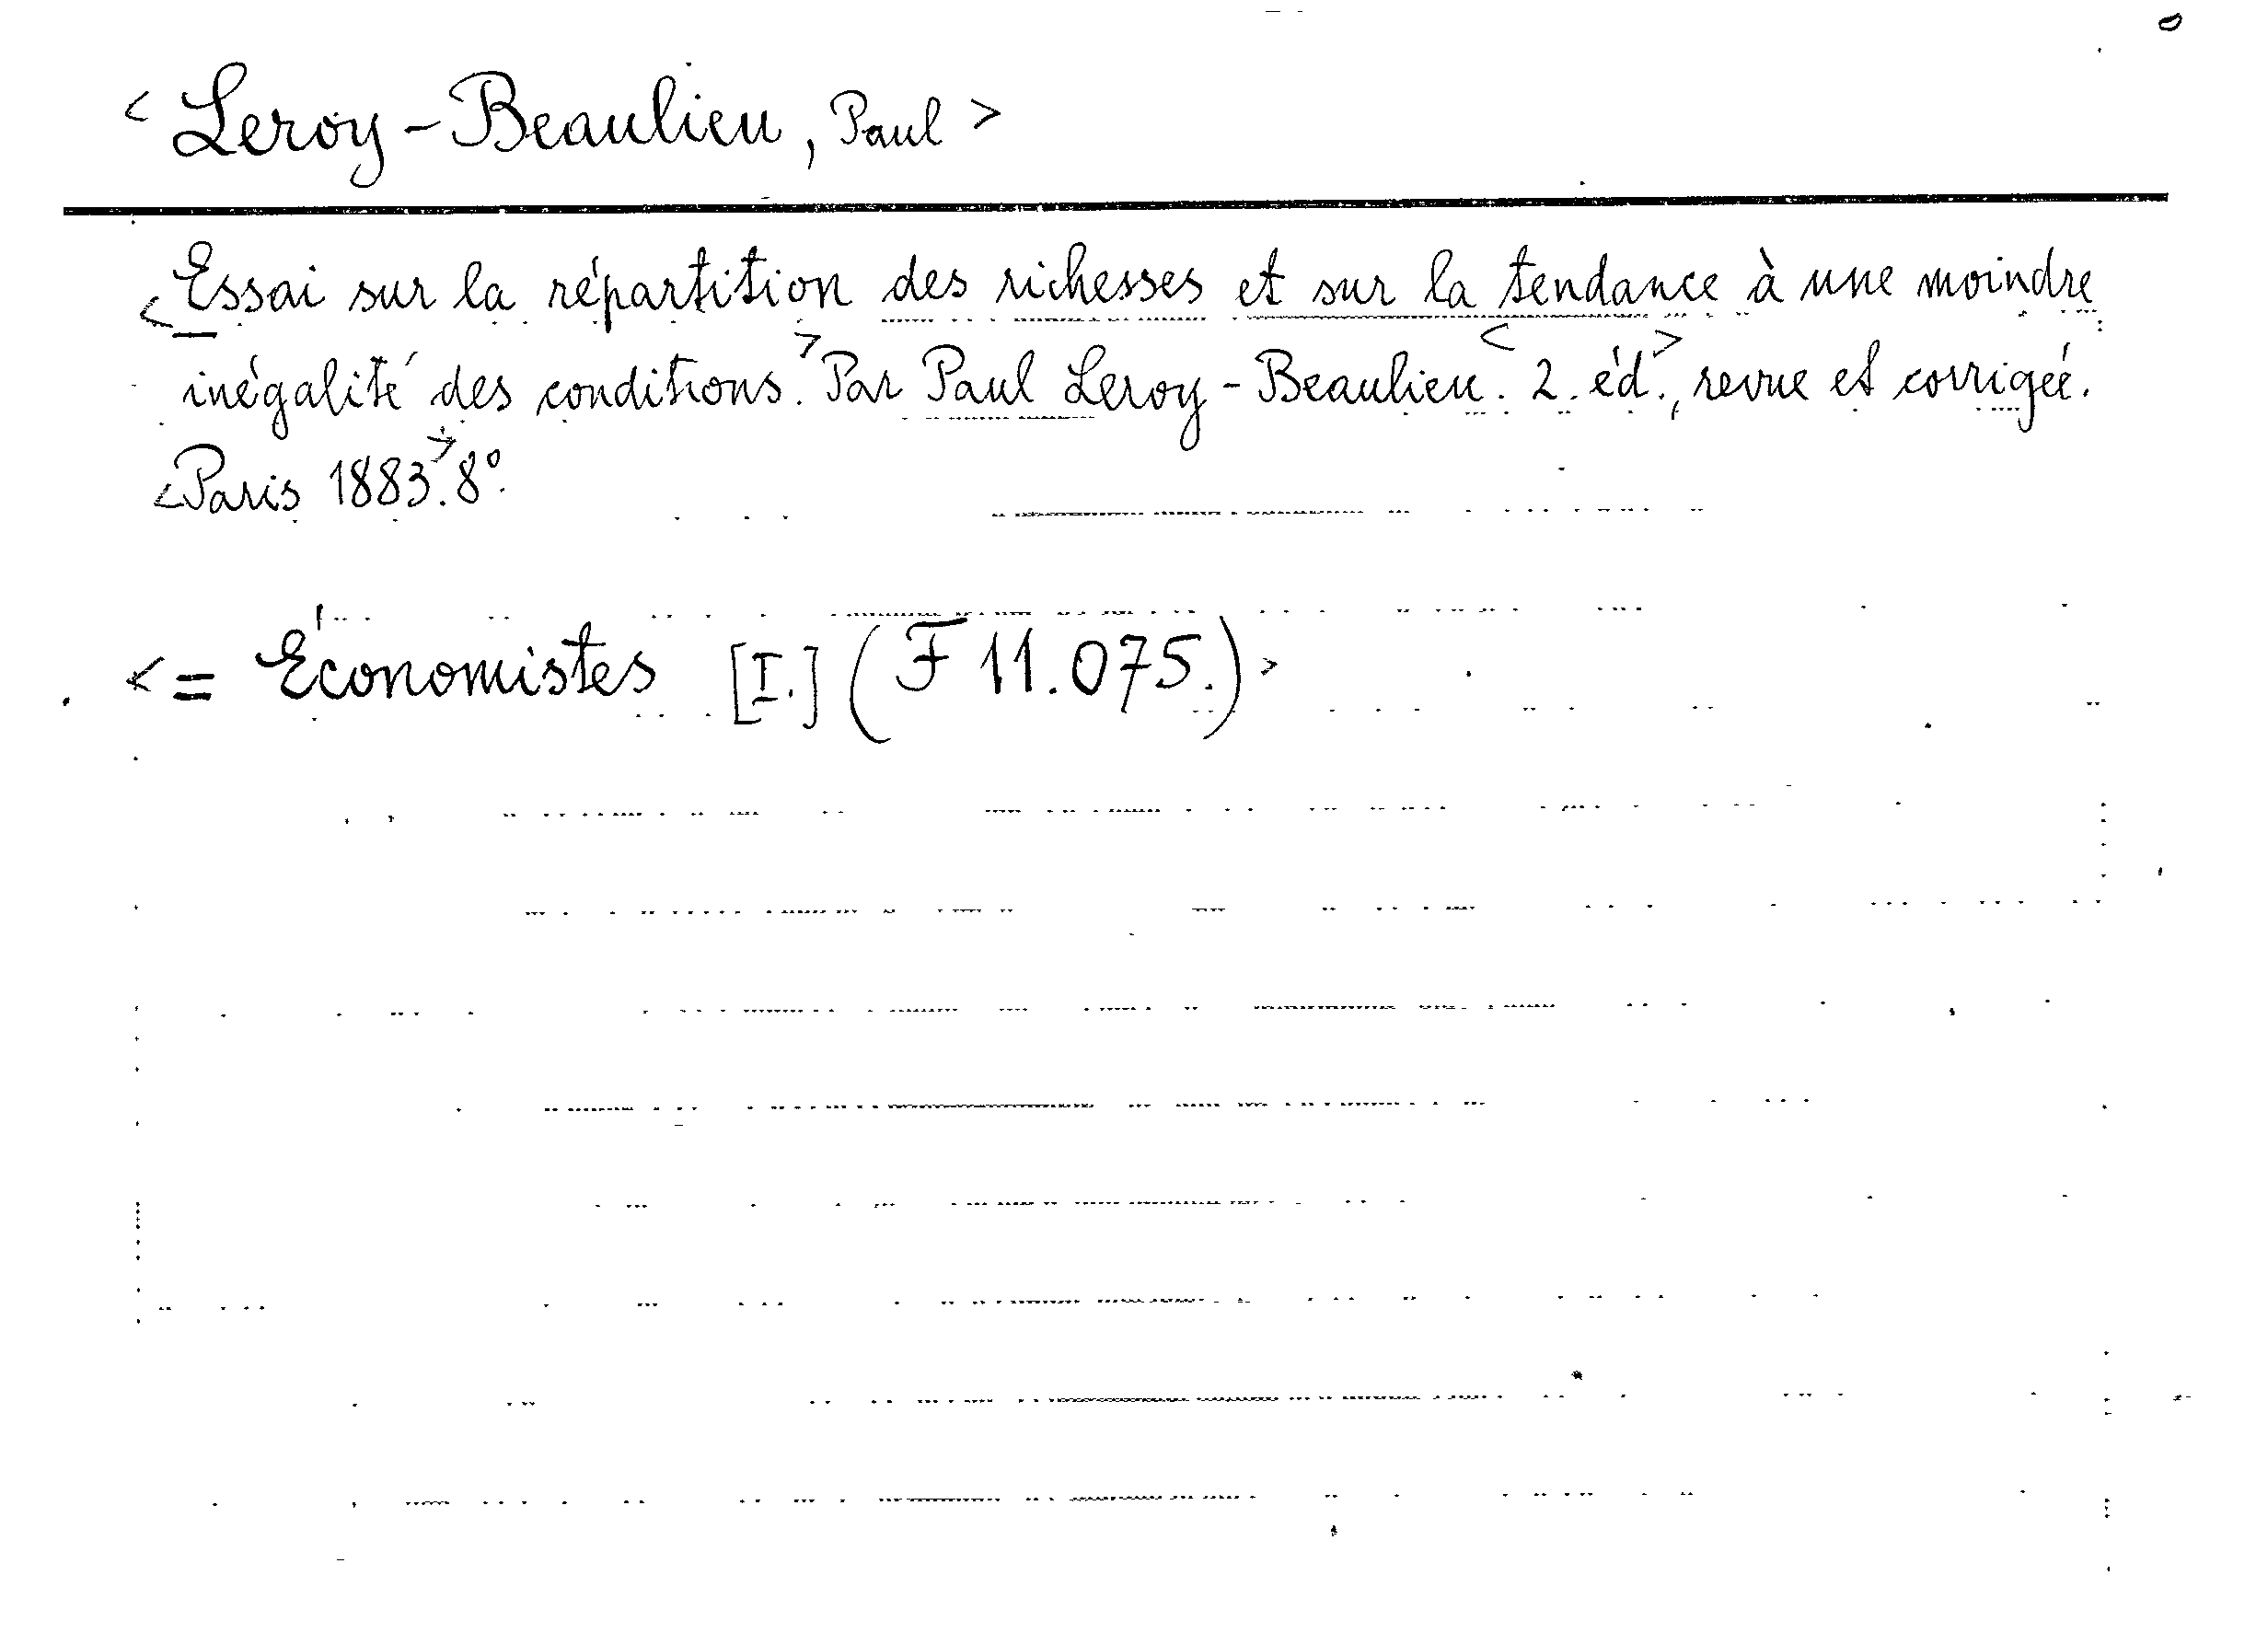 < Leroy-Beaulieu, Paul >
<Essai sur la répartition des richesses et sur la tendance à une moindre
inégalité des conditions.> Par Paul Leroy-Beaulieu. <2. éd.>, revue et corrigée.
<Paris 1883.> 8°.
<= Économistes [I.] (F 11.075.)>